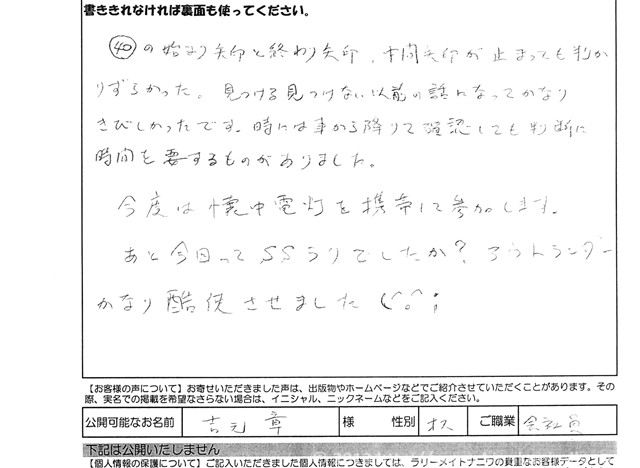 書ききれなければ裏面も使ってください。
㊵の始まり矢印と終わり矢印、中間矢印が止まっても判か
りずらかった。見つける見つけない以前の話になってかなり
きびしかったです。時には車から降りて確認しても判断に
時間を要するものがありました。
今度は懐中電灯を携帯して参加します。
あと今回ってSSラリでしたか？アウトランダー
かなり酷使させました(^。^;
【お客様の声について】お寄せいただきました声は、出版物やホームページなどでご紹介させていただくことがあります。その
際、実名での掲載を希望なさらない場合は、イニシャル、ニックネームなどをご記入ください。
公開可能なお名前 吉元 章 様 性別 オス ご職業 会社員
下記は公開いたしません
【個人情報の保護について】ご記入いただきました個人情報につきましては、ラリーメイトナニワの貴重なお客様データとして